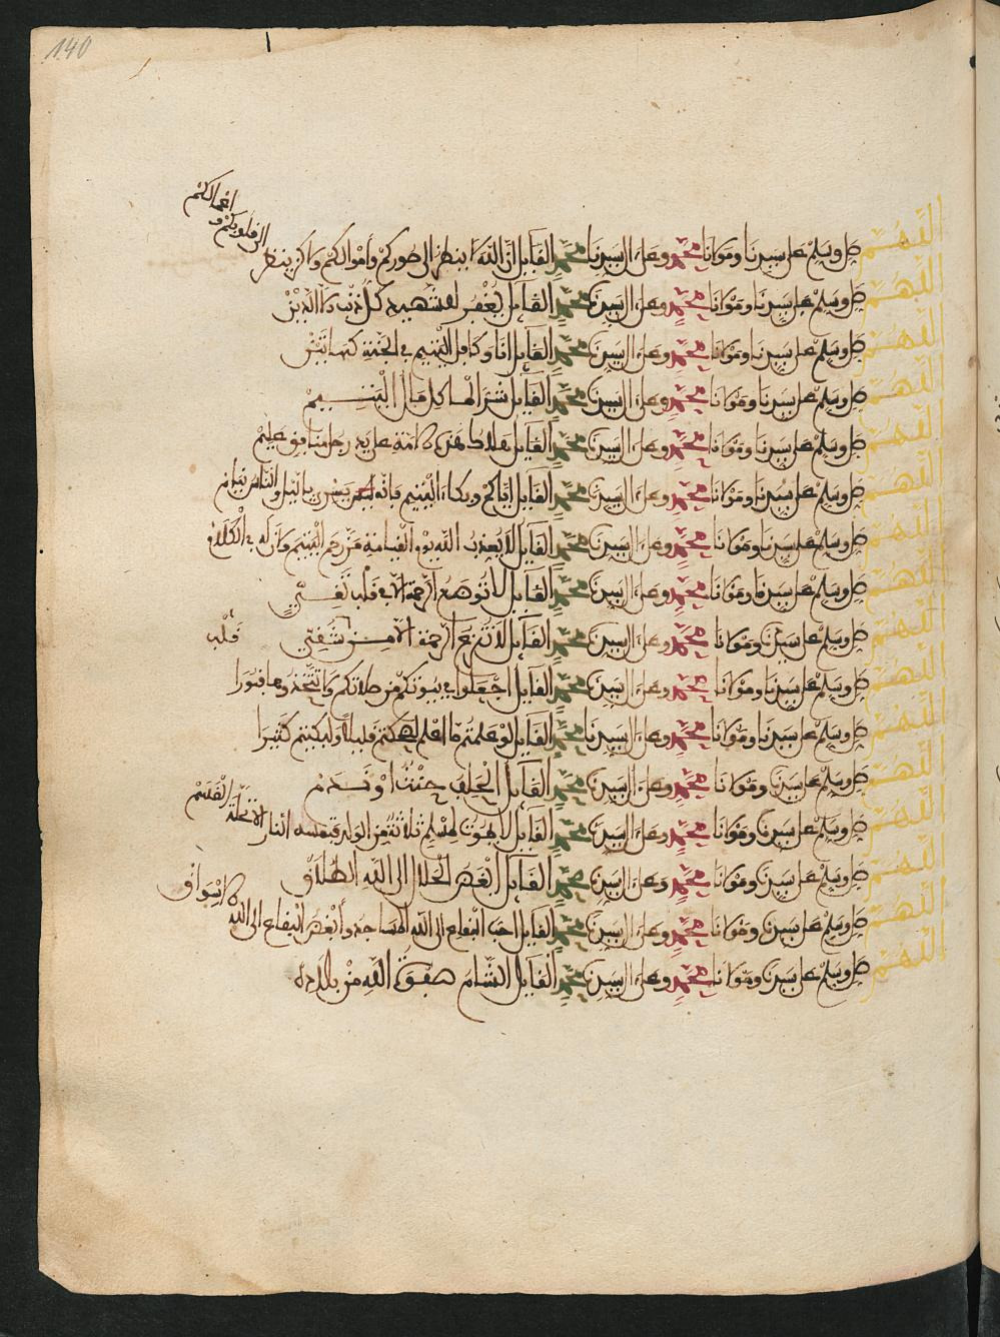 140
اللهم صل وسلم على سيدنا ومولانا محمد وعلى ءال سيدنا محمد القايل ان الله لا ينظر الى صوركم وأموالكم ولاكن ينظر الى قلوبكم و اعمالكم
اللهم صل وسلم على سيدنا ومولانا محمد وعلى ءال سيدنا محمد القايل يغفر للشهيد كل ذنب الا الدين
اللهم صل وسلم على سيدنا ومولانا محمد وعلى ءال سيدنا محمد القايل انا وكافل اليتيم في الجنة كهاتين
اللهم صل وسلم على سيدنا ومولانا محمد وعلى ءال سيدنا محمد القايل شر المأكل مال اليتيم
اللهم صل وسلم على سيدنا ومولانا محمد وعلى ءال سيدنا محمد القايل هلاك هذه الامة على يد رجل منافق عليم
اللهم صل وسلم على سيدنا ومولانا محمد وعلى ءال سيدنا محمد القايل اياكم وبكاء اليتيم فانه يسري باليل والناس نيام
اللهم صل وسلم على سيدنا ومولانا محمد وعلى ءال سيدنا محمد القايل لا يعذب الله يوم القيامة من رحم اليتيم ولان له في الكلام
اللهم صل وسلم على سيدنا ومولانا محمد وعلى ءال سيدنا محمد القايل لا توضع الرحمة الا في قلب تقي
اللهم صل وسلم على سيدنا ومولانا محمد وعلى ءال سيدنا محمد القايل لا تنزع الرحمة الا من شقي قلب
اللهم صل وسلم على سيدنا ومولانا محمد وعلى ءال سيدنا محمد القايل اجعلوا في بيوتكم من صلاتكم ولا تتخذوها قبورا
اللهم صل وسلم على سيدنا ومولانا محمد وعلى ءال سيدنا محمد القايل لو علمتم ما اعلم لضحكتم قليلا ولبكيتم كثيرا
اللهم صل وسلم على سيدنا ومولانا محمد وعلى ءال سيدنا محمد القايل الحلف حنث او ندم
اللهم صل وسلم على سيدنا ومولانا محمد وعلى ءال سيدنا محمد القايل لا يموت لمسلم ثلاثة من الولد فتمسه النار الا تحلة القسم
اللهم صل وسلم على سيدنا ومولانا محمد وعلى ءال سيدنا محمد القايل ابغض الحلال الى الله الطلاق
اللهم صل وسلم على سيدنا ومولانا محمد وعلى ءال سيدنا محمد القايل احب البقاع الى الله المساجد وأبغض البقاع الى الله الاسواق
اللهم صل وسلم على سيدنا ومولانا محمد وعلى ءال سيدنا محمد القايل الشام صفوة الله من بلاده